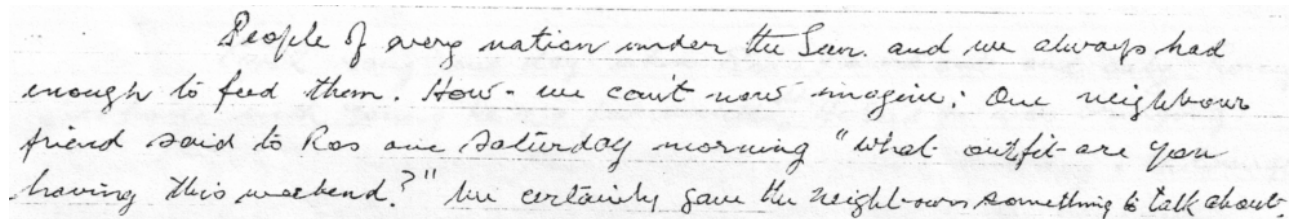 People of every nation under the Sun. and we always had
enough to feed them. How - we can't now imagine; One neighbour
friend said to Ros one Saturday morning "what outfit are you
having this weekend?" We certainly gave the neighbours something to talk about.